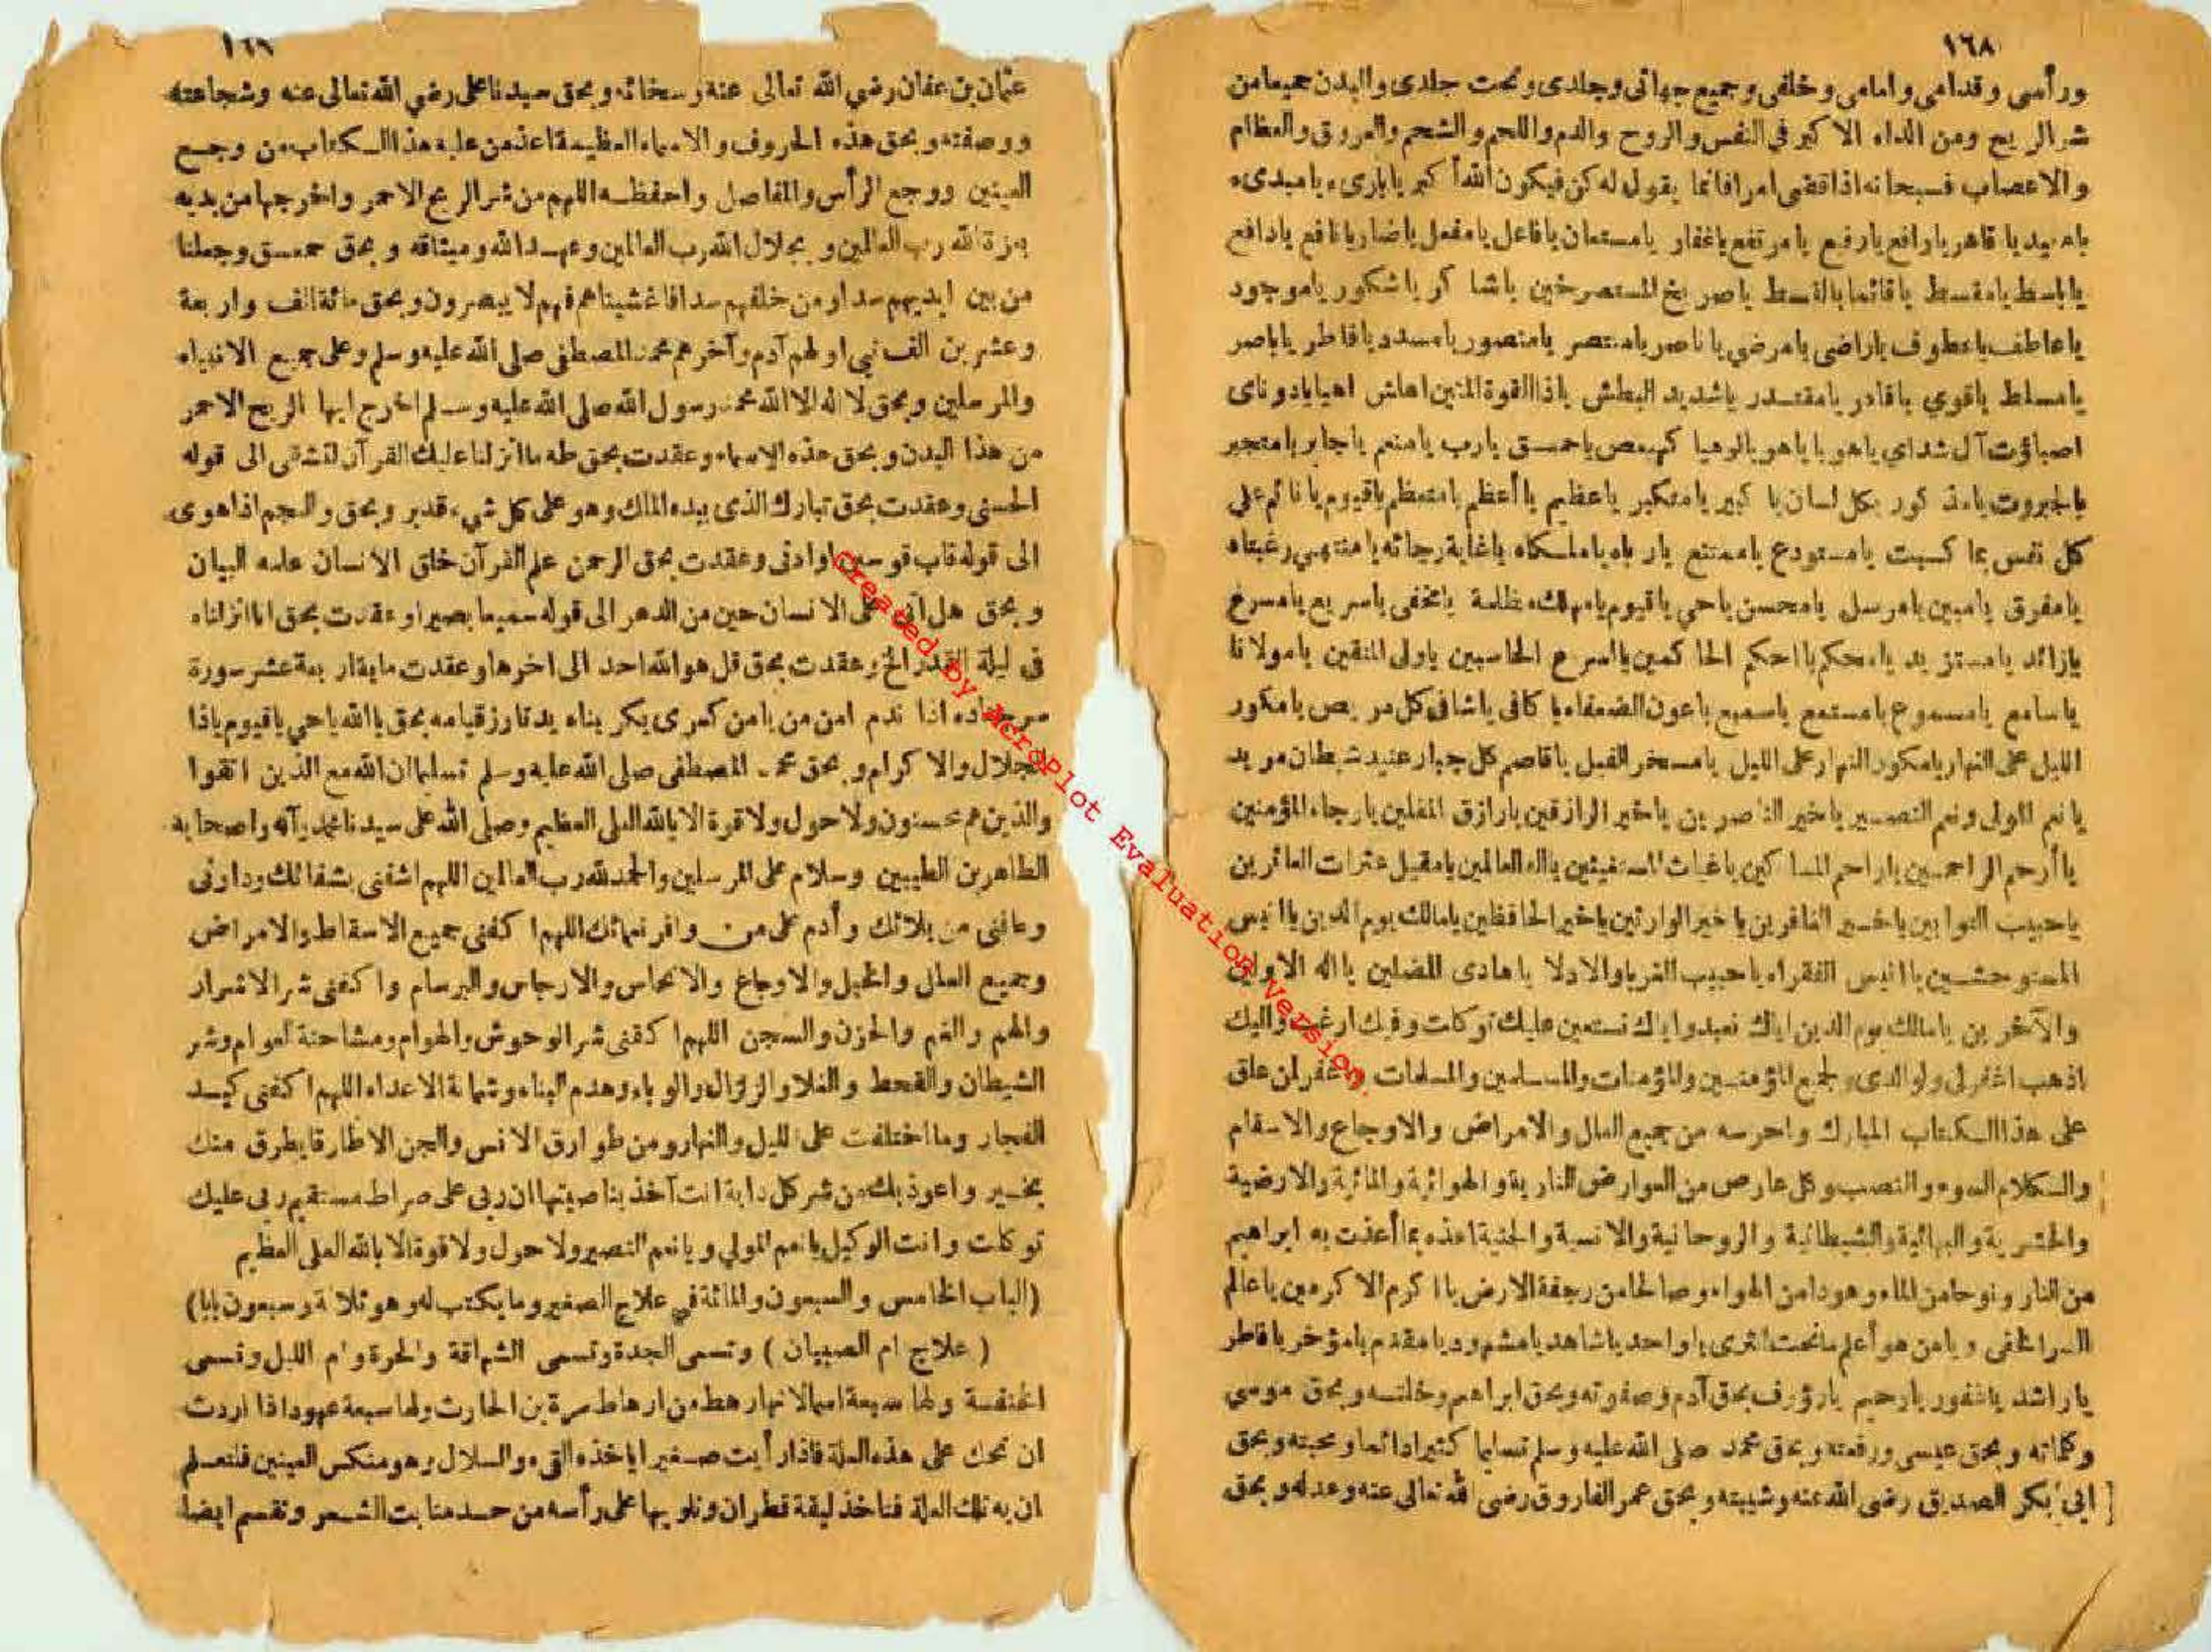 ١٦٨
ورأسى وقدامى وامامى وخلفى وجميع جهاتى وجلدى وتحت جلدى والبدن جميعا من
شر الريح ومن الداء الاكبر فى النفس والروح والدم واللحم والشحم والعروق والعظام
والاعصاب فسبحانه اذا قضى امرا فانما يقول له كن فيكون الله أكبر يا بارىء يا مبدىء
يا معيد يا قاهر يا رافع يا رفيع يا مرتفع يا غفار يا مستعان يا فاعل يا مفعل يا ضار يا نافع يا دافع
يا باسط يا مقسط يا قائما بالقسط يا صريخ المستصرخين يا شاكر يا شكور يا موجود
يا عاطف يا عطوف يا راضى يا مرضي يا ناصر يا منتصر يا منصور يا مسدد يا فاطر يا ناصر
يا مسلط يا قوي يا قادر يا مقتدر يا شديد البطش يا ذا القوة المتين اهاش اهيا يا دوناى
اصباؤت آل شداي يا هو يا يا هو يا لوهيا كهيعص يا حمعسق يارب يا منعم يا جابر يا متجبر
يا جبروت يا مذكور بكل لسان يا كبير يا متكبر يا عظيم يا أعظم يا متعظم يا قيوم يا قائم على
كل نفس بما كسبت يا مستودع يا ممتنع يا رباه يا ملكاه يا غاية رجائه يا منتهى رغبتاه
يا مفرق يا مبين يا مرسل يا محسن يا حي يا قيوم يا مهلك ظلمة يا مخفى يا سريع يا مسرع
يا زائد يا مستزيد يا محكم يا احكم الحاكمين يا اسرع الحاسبين يا ولى المتقين يا مولانا
يا سامع يا مسموع يا مستمع يا سميع يا عون الضعفاء يا كافى يا شافى كل مريض يا مكور
الليل على النهار يا مكور النهار على الليل يا مسخر الفيل يا قاصم كل جبار عنيد شيطان مريد
يا نعم المولى ونعم النصير يا خير الناصرين يا خير الرازقين يا رازق المقلين يا رجاء المؤمنين
يا أرحم الراحمين يا راحم المساكين يا غياث المستغيثين يا اله العالمين يا مقيل عثرات العاثرين
يا حبيب التوابين يا خير الغافرين يا خير الوارثين يا خير الحافظين يا مالك يوم الدين يا انيس
المستوحشين يا انيس الفقراء يا حبيب الغربا والادلا يا هادى المضلين يا اله الاولين
والآخرين يا مالك يوم الدين اياك نعبد واياك نستعين عليك توكلت وفيك ارغب واليك
اذهب اغفر لى ولوالدى ولجميع المؤمنين والمؤمنات والمسلمين والمسلمات واغفر لمن علق
على هذا الكتاب المبارك واحرسه من جميع العلل والامراض والاوجاع والاسقام
والكلام السوء والنصب وكل عارض من العوارض النارية والهوائية والمائية والارضية
والحشرية والبهائية والشيطانية والروحانية والانسية والجنية اعذه بما أعذت به ابراهيم
من النار ونوحا من الماء وهودا من الهواء وصالحا من رجفة الارض يا اكرم الاكرمين يا عالم
السر الخفى ويا من هو أعلم ما تحت الثرى يا واحد يا شاهد يا مشهود يا مقدم يا مؤخر يا فاطر
يا راشد يا غفور يا رحيم يا رؤوف بحق آدم وصفوته وبحق ابراهيم وخلته وبحق موسى
وكلماته وبحق عيسى ورفعته وبحق محمد صلى الله عليه وسلم تسليما كثيرا دائما ومحبته وبحق
ابى بكر الصديق رضى الله عنه وشيبته وبحق عمر الفاروق رضى الله تعالى عنه وعدله وبحق
١٦٩
عثمان بن عفان رضي الله تعالى عنه وسخائه وبحق سيدنا على رضي الله تعالى عنه وشجاعته
ووصفته وبحق هذه الحروف والاسماء العظيمة اعذ من عليه هذا الكتاب من وجع
العينين ووجع الرأس والمفاصل واحفظه اللهم من شر الريح الاحمر واخرجها من يديه
بعزة الله رب العالمين وبجلال الله رب العالمين وعهد الله وميثاقه وبحق حمعسق وجعلنا
من بين ايديهم سدا ومن خلفهم سدا فاغشيناهم فهم لا يبصرون وبحق مائة الف واربعة
وعشرين الف نبى اولهم آدم وآخرهم محمد المصطفى صلى الله عليه وسلم وعلى جميع الانبياء
والمرسلين وبحق لا اله الا الله محمد رسول الله صلى الله عليه وسلم اخرج ايها الريح الاحمر
من هذا البدن وبحق هذه الاسماء وعقدت بحق طه ما انزلنا عليك القرآن لتشقى الى قوله
الحسنى وعقدت بحق تبارك الذى بيده الملك وهو على كل شيء قدير وبحق والنجم اذا هوى
الى قوله قاب قوسين او ادنى وعقدت بحق الرحمن علم القرآن خلق الانسان علمه البيان
وبحق هل أتى على الانسان حين من الدهر الى قوله سميعا بصيرا وعقدت بحق انا انزلناه
فى ليلة القدر الخ وعقدت بحق قل هو الله احد الى اخرها وعقدت ما بقى اربعة عشر سورة
اذا ندم امن من يا من كسرى بحق يا الله يا حي يا قيوم يا ذا
الجلال والاكرام وبحق محمد المصطفى صلى الله عليه وسلم تسليما ان الله مع الذين اتقوا
والذين هم محسنون ولا حول ولا قوة الا بالله العلى العظيم وصلى الله على سيدنا محمد وآله واصحابه
الطاهرين الطيبين وسلام على المرسلين والحمد لله رب العالمين اللهم اشفنى بشفائك وداونى
وعافنى من بلائك وأدم على من وافر نعمائك اللهم اكفنى جميع الاسقاط والامراض
وجميع العلل والخبل والاوجاع والانحاس والارجاس والبرسام واكفنى شر الاشرار
والهم والغم والحزن والسجن اللهم اكفنى شر الوحوش والهوام ومشاحنة العوام وشر
الشيطان والقحط والغلا والزلزال والوباء وهدم البناء وشماتة الاعداء اللهم اكفنى كيد
الفجار وما اختلفت على الليل والنهار ومن طوارق الانس والجن الا طارقا يطرق منك
بخير واعوذ بك من شر كل دابة انت آخذ بناصيتها ان ربى على صراط مستقيم ربى عليك
توكلت وانت الوكيل يا نعم المولي ويا نعم النصير ولا حول ولا قوة الا بالله العلى العظيم
(الباب الخامس والسبعون والمائة في علاج الصغير وما يكتب له وهو ثلاثة وسبعون بابا)
( علاج ام الصبيان ) وتسمى الجدة وتسمى الشهاقة والحرة وام الليل وتسمى
الخنفسة ولها سبعة اسما لانها رهط من ارهاط مرة بن الحارث ولها سبعة عهود اذا اردت
ان تحك على هذه العلة فاذا رأيت صغيرا ياخذه القىء والسلال وهو منكس العينين فلتعلم
ان به تلك العلة فتاخذ ليقة قطران وتلويها على رأسه من حد منابت الشعر وتقسم ايضا
Created by AcroPlot Evaluation Version.